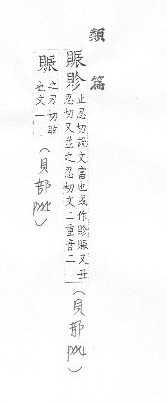 類篇
賑
止忍切說文富也或作 賑又丑
忍切又並之忍切文二重音二
(貝部
賑
之刃切
也文一
(貝部